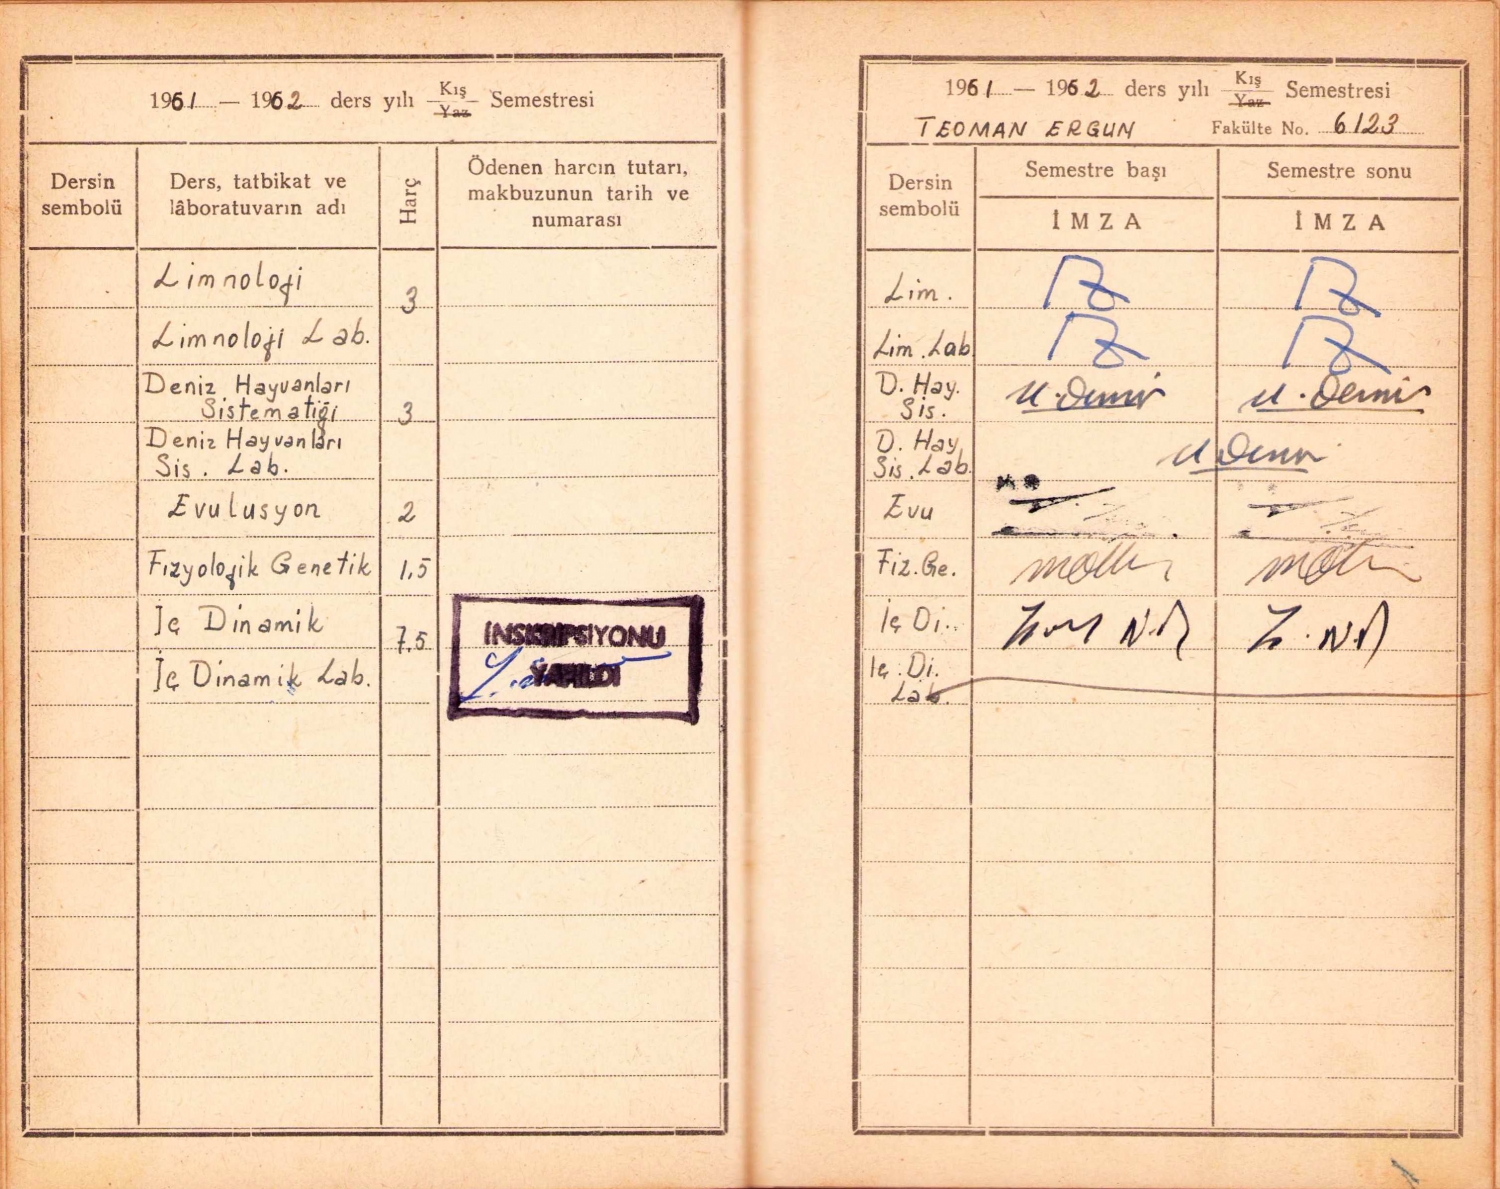 1961 — 1962 ders yılı Kış Semestresi
Yaz
Dersin sembolü
Ders, tatbikat ve lâboratuvarın adı
Harç
Ödenen harcın tutarı, makbuzunun tarih ve numarası
Limnoloji 3
Limnoloji Lab.
Deniz Hayvanları
Sistematiği 3
Deniz Hayvanları
Sis. Lab.
Evulusyon 2
Fizyolojik Genetik 1,5
İç Dinamik 7,5
İç Dinamik Lab.
İNSKRİPSİYONU
YAPILDI
1961 — 1962 ders yılı Kış Semestresi
Yaz
TEOMAN ERGUN Fakülte No. 6123
Dersin sembolü
Semestre başı
Semestre sonu
İMZA
İMZA
Lim.
Lim. Lab
D. Hay.
Sis.
U. Demir U. Demir
D. Hay.
Sis. Lab.
U Demir
Evu
Fiz. Ge.
İç Di..
İç. Di.
Lab.